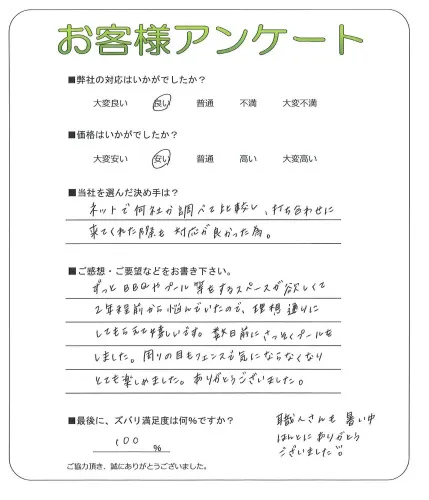 お客様アンケート
■弊社の対応はいかがでしたか？
大変良い 良い 普通 不満 大変不満
■価格はいかがでしたか？
大変安い 安い 普通 高い 大変高い
■当社を選んだ決め手は？
ネットで何社か調べて比較し、打ち合わせに
来てくれた際も 対応が良かった為。
■ご感想・ご要望などをお書き下さい。
ずっとBBQやプール等をするスペースが欲しくて
2年程前から悩んでいたので、理想通りに
してもらえて嬉しいです。数日前にさっそくプールを
しました。周りの目もフェンスで気にならなくなり
とても楽しめました。ありがとうございました。
■最後に、ズバリ満足度は何%ですか？
100 %
職人さんも暑い中
ほんとにありがとう
ございました!!
ご協力頂き、誠にありがとうございました。